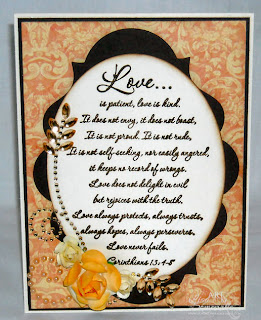 Love...
is patient, love is kind.
It does not envy, it does not boast,
It is not proud. It is not rude,
It is not self-seeking, nor easily angered,
it keeps no record of wrongs.
Love does not delight in evil
but rejoices with the truth.
Love always protects, always trusts,
always hopes, always perseveres.
Love never fails.
Corinthians 13:4-8